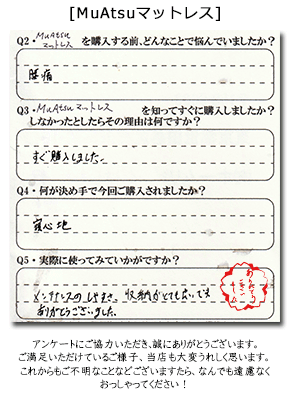 [MuAtsuマットレス]
Q2・MuAtsuマットレス を購入する前、どんなことで悩んでいましたか?
腰痛
Q3・MuAtsuマットレス を知ってすぐに購入しましたか?
しなかったとしたらその理由は何ですか?
すぐ購入しました。
Q4・何が決め手で今回ご購入されましたか?
寝心地
Q5・実際に使ってみていかがですか?
メンテナンスのしやすさ、収納がとても良いです
ありがとうございました。
アンケートにご協力いただき、誠にありがとうございます。
ご満足いただけているご様子、当店も大変うれしく思います。
これからもご不明なことなどございますたら、なんでも遠慮なく
おっしゃってください!